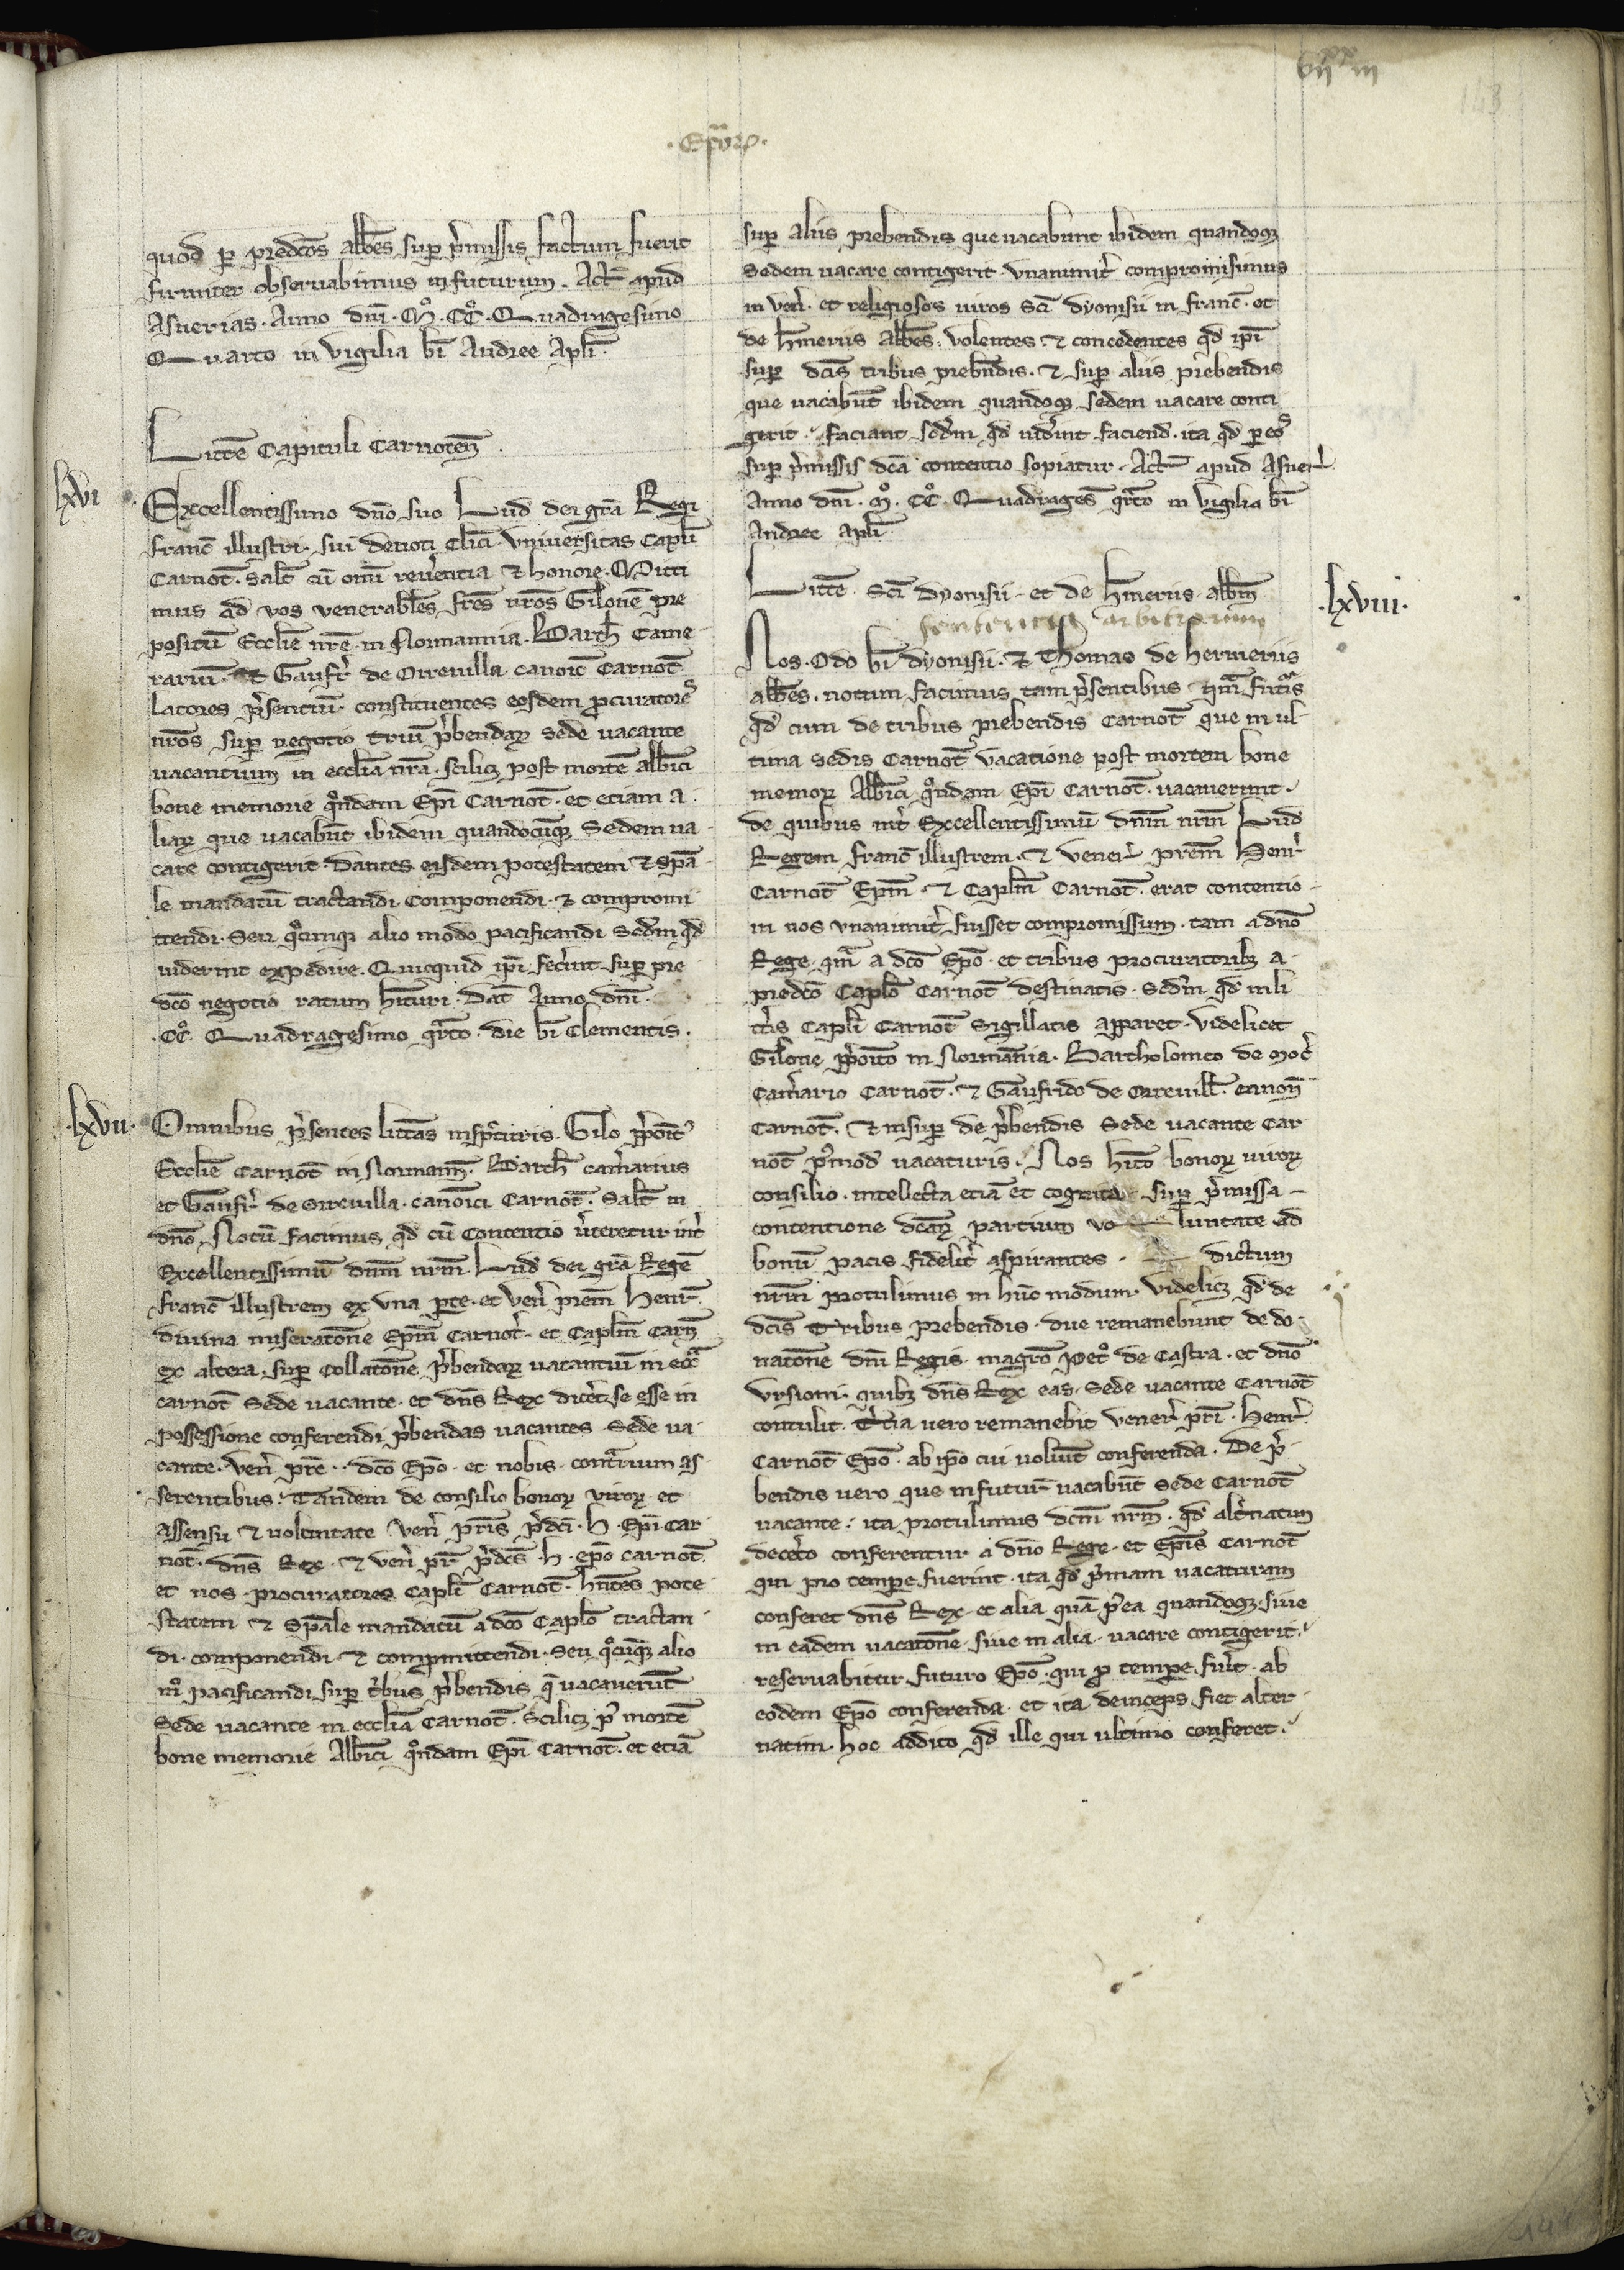 ·Epōrꝝ·
vijˣˣiij
143
quod ꝑ predc̄os abb̄es suꝑ p̄missis factum fuerit
firmiter obseruabimus in futurum. Act̄ apud
Asnerias. Anno dn̄i. Mͦ. CCͦ. Quadragesimo
Quarto in vigilia bī Andree Apl̄i.
Litt̄e Capituli Carnoteñ.
lxvi
Excellentissimo dn̄o suo Lud̄ dei gr̄a Regi
franc̄ illustri. sui deuoti cl̄ici vniuersitas Capl̄i
Carnot̄. Salt̄ cū om̄i reuerentia ⁊ honore. Mitti
mus ad vos venerabl̄es fr̄es nr̄os Gilonē pre
positū Eccl̄ie nr̄e in Normannia. Barth̄ came
rariū. ⁊ Gaufr̄ de Orreuilla canoic̄ Carnot̄
latores p̄sentiū constituentes eosdem ꝓcuratores
nr̄os suꝑ negotio triū p̄bendaꝝ Sede uacante
uacantium in eccl̄ia nr̄a. scilicꝫ post mortē Alb̄ici
bone memorie qͦndam Ep̄i Carnot̄. et etiam a
liaꝝ que uacabūt ibidem quandocūqꝫ Sedem ua
care contigerit. Dantes eisdem potestatem ⁊ sp̄a
le mandatū tractandi. Componendi. ⁊ compromi
ttendi. Seu qͦcunqꝫ alio modo pacificandi Scd̄m qd̄
uiderint expedire. Quicquid ip̄i fec̄int suꝑ pre
dc̄o negotio ratum hituri. Dat̄ Anno dn̄i.
.CCͦ. Quadragesimo qͣrto die bī Clementis.
.lxvii.
Omnibus p̄sentes litt̄as insp̄cturis. Gilo p̄poit̄
Eccl̄ie Carnot̄ in Normann̄. Barth̄ cam̄arius
et Gaufr̄ de Orreuilla. canoīci Carnot̄. Salt̄ in
dn̄o. Notū facimus qd̄ cū Contentio ūteretur int̄
Excellentissimū dn̄m nr̄m Lud̄ dei gr̄a Regē
franc̄ illustrem ex vna parte. et ven̄ pr̄em Henr̄
diuina miserat̄one Ep̄m Carnot̄. et Capl̄m Carn̄
ex altera. suꝑ collat̄one p̄bendaꝝ uacantiū in ecc̄a
carnot̄ Sede uacante. et dn̄s Rex dic̄et se esse in
possessione conferendi p̄bendas uacantes Sede ua
cante. Ven̄ pr̄e.. dc̄o Ep̄o. et nobis. contͣrium as
serentibus. Tandem de consilio bonoꝝ viroꝝ et
assensu ⁊ uoluntate ven̄ pr̄is p̄dc̄i. H. Ep̄i Car
not̄. dn̄s Rex. ⁊ ven̄ pr̄ p̄dc̄s. H. ep̄o carnot̄.
et nos procuratores Capl̄i Carnot̄. hn̄tes pote
statem ⁊ Sp̄ale mandatū a dc̄o Capl̄o tractan
di. componendi. ⁊ compmittendi. Seu qͦcūqꝫ alio
mͦ pacificandi suꝑ t̄bus p̄bendis q̄ uacauerūt
Sede uacante in eccl̄ia Carnot̄. Scilicꝫ pꝰ mortē
bone memorie Alb̄ici qͦndam Ep̄i Carnot̄. et etiā
suꝑ aliis prebendis que uacabunt ibidem quandoqꝫ
Sedem uacare contigerit. Vnanimit̄ compromisimus
in ven̄. et religiosos uiros Sc̄i dyonisii in franc̄. et
de h̄meriis Abb̄es. volentes ⁊ concedentes qd̄ ip̄i
suꝑ dc̄is tribus prebn̄dis. ⁊ suꝑ aliis prebendis
que uacabūt ibidem quandoqꝫ sedem uacare conti
gerit. Faciant scd̄m qd̄ uid̄int faciend̄. ita qd̄ ꝑ eos
suꝑ p̄missis dc̄a contentio sopiatur. Act̄ apud Asner̄
Anno dn̄i. Mͦ. CCͦ. Quadrages̄ qͣrto in vigilia bī
Andree Apl̄i
Litt̄e. Sc̄i dyonisii. et de h̄meriis abb̄m
sententia arbitrorum
.lxviii.
Nos. Odo bī dyonisii. ⁊ Thomas de hermeriis
abb̄es. notum facimus tam p̄sentibus qͣm futͣis
qd̄ cum de tribus prebendis Carnot̄ que in ul
tima Sedis Carnot̄ vacatione post mortem bone
memoꝝ Alb̄ici qͦndam Ep̄i Carnot̄. uacauerunt.
de quibus int̄ Excellentissimū dn̄m nr̄m Lud̄
Regem franc̄ illustrem. ⁊ Vener̄ pr̄em Henr̄
Carnot̄ Ep̄m. ⁊ Capl̄m Carnot̄. erat contentio
in nos vnanimit̄ fuisset compromissum. tam a dn̄o
Rege. qͣm a dc̄o Ep̄o. et tribus procuratoribꝫ a
predc̄o Capl̄o Carnot̄ destinatis. Scd̄m qd̄ in li
tt̄is Capl̄i Carnot̄ Sigillatis apparet. videlicet
Gilone p̄poito in Normānia. Bartholomeo de Moc̄
Cam̄ario Carnot̄. ⁊ Gaufrido de Orreuill̄. canon̄
Carnot̄. ⁊ insuꝑ de p̄bendis Sede vacante Car
not̄ pꝰmod̄ uacaturis. Nos hito bonoꝝ uiroꝝ
consilio. intellecta etiā et cognita suꝑ p̄missa
contentione dc̄aꝝ partium vo luntate ad
bonū pacis fidelit̄ aspirantes. dictum
nr̄m protulimus in hūc modum. Videlicꝫ qd̄ de
dc̄is Tribus prebendis. due remanebunt de do
nat̄one dn̄i Regis. magr̄o Petͦ de Castra. et dn̄o
Vrsioni. quibꝫ dn̄s Rex eas. Sede uacante Carnot̄
contulit. T̄cia uero remanebit vener̄ pr̄i. Henr̄
Carnot̄ Ep̄o. ab ip̄o cui uoluīt conferenda. De p̄
bendis uero que in futur̄ uacabūt Sede Carnot̄
uacante. ita protulimus dc̄m nr̄m. qd̄ alt̄natim
dec̄o conferentur a dn̄o Rege. et Ep̄is Carnot̄
qui pro tempe fuerint. ita qd̄ p̄mam uacaturam
conferet dn̄s Rex. et alia quā p̄ea quandoqꝫ. siue
in eadem uacat̄one. siue in alia. uacare contigerit.
reseruabitur futuro Ep̄o. qui ꝓ tempe fūit. ab
eodem Ep̄o conferenda. et ita deinceps fiet alter
natim. hoc addito qd̄ ille qui ultimo conferet.
143